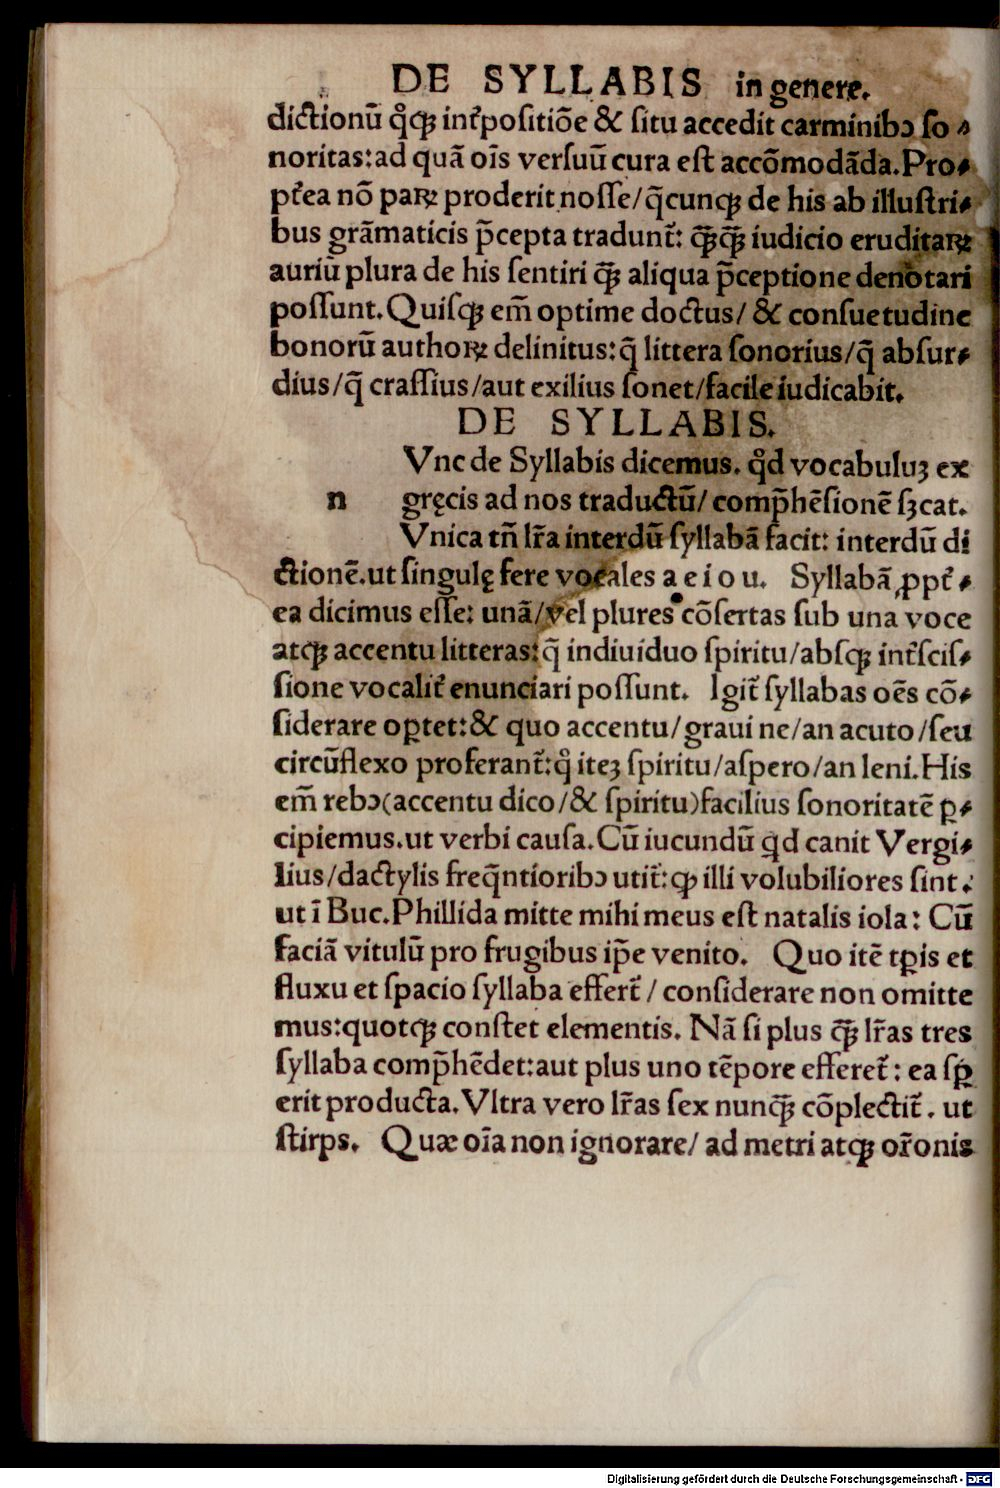 DE SYLLABIS in genere.
dictionū q̊qꝫ int̃positiōe & situ accedit carminibꝰ so⸗
noritas:ad quā oīs versuū cura est accōmodāda.Pro⸗
pt̃ea nō paꝝ proderit nosse/q̄cunqꝫ de his ab illustri⸗
bus grāmaticis p̄cepta tradunt̃: qꝫ̄qꝫ̄ iudicio eruditaꝝ
auriū plura de his sentiri qꝫ̄ aliqua p̄ceptione denotari
possunt.Quisqꝫ em̄ optime doctus/ & consuetudine
bonorū authoꝝ delinitus:q̄ littera sonorius/q̄ absur⸗
dius/q̄ crassius/aut exilius sonet/facile iudicabit.
DE SYLLABIS.
Vnc de Syllabis dicemus. q̊d vocabuluꝫ ex
n gręcis ad nos traductū/ comp̄hēsionē sꝫcat.
Vnica tn̄ lr̄a interdū syllabā facit: interdū di
ctionē.ut singulę fere vocales a e i o u. Syllabā ꝓpt̃⸗
ea dicimus esse: unā/vel plures cōsertas sub una voce
atqꝫ accentu litteras:q̄ indiuiduo spiritu/absqꝫ int̃scis⸗
sione vocalit̃ enunciari possunt. Igit̃ syllabas oēs cō⸗
siderare oꝑtet:& quo accentu/graui ne/an acuto/seu
circūflexo proferant̃:q̊ iteꝫ spiritu/aspero/an leni.His
em̄ rebꝰ(accentu dico/& spiritu)facilius sonoritatē ꝑ⸗
cipiemus.ut verbi causa.Cū iucundū qd canit Vergi⸗
lius/dactylis freq̄ntioribꝰ utit̃:ꝙ illi volubiliores sint.
ut ī Buc.Phillida mitte mihi meus est natalis iola: Cū
faciā vitulū pro frugibus ip̄e venito. Quo itē tꝑis et
fluxu et spacio syllaba effert̃ / considerare non omitte
mus:quotqꝫ constet elementis. Nā si plus qꝫ̄ lr̄as tres
syllaba comp̄hēdet:aut plus uno tēpore efferet̃: ea sꝑ
erit producta.Vltra vero lr̄as sex nunqꝫ̄ cōplectit̃. ut
stirps. Quæ oīa non ignorare/ ad metri atqꝫ or̄onis
Digitalisierung gefördert durch die Deutsche Forschungsgemeinschaft - DFG